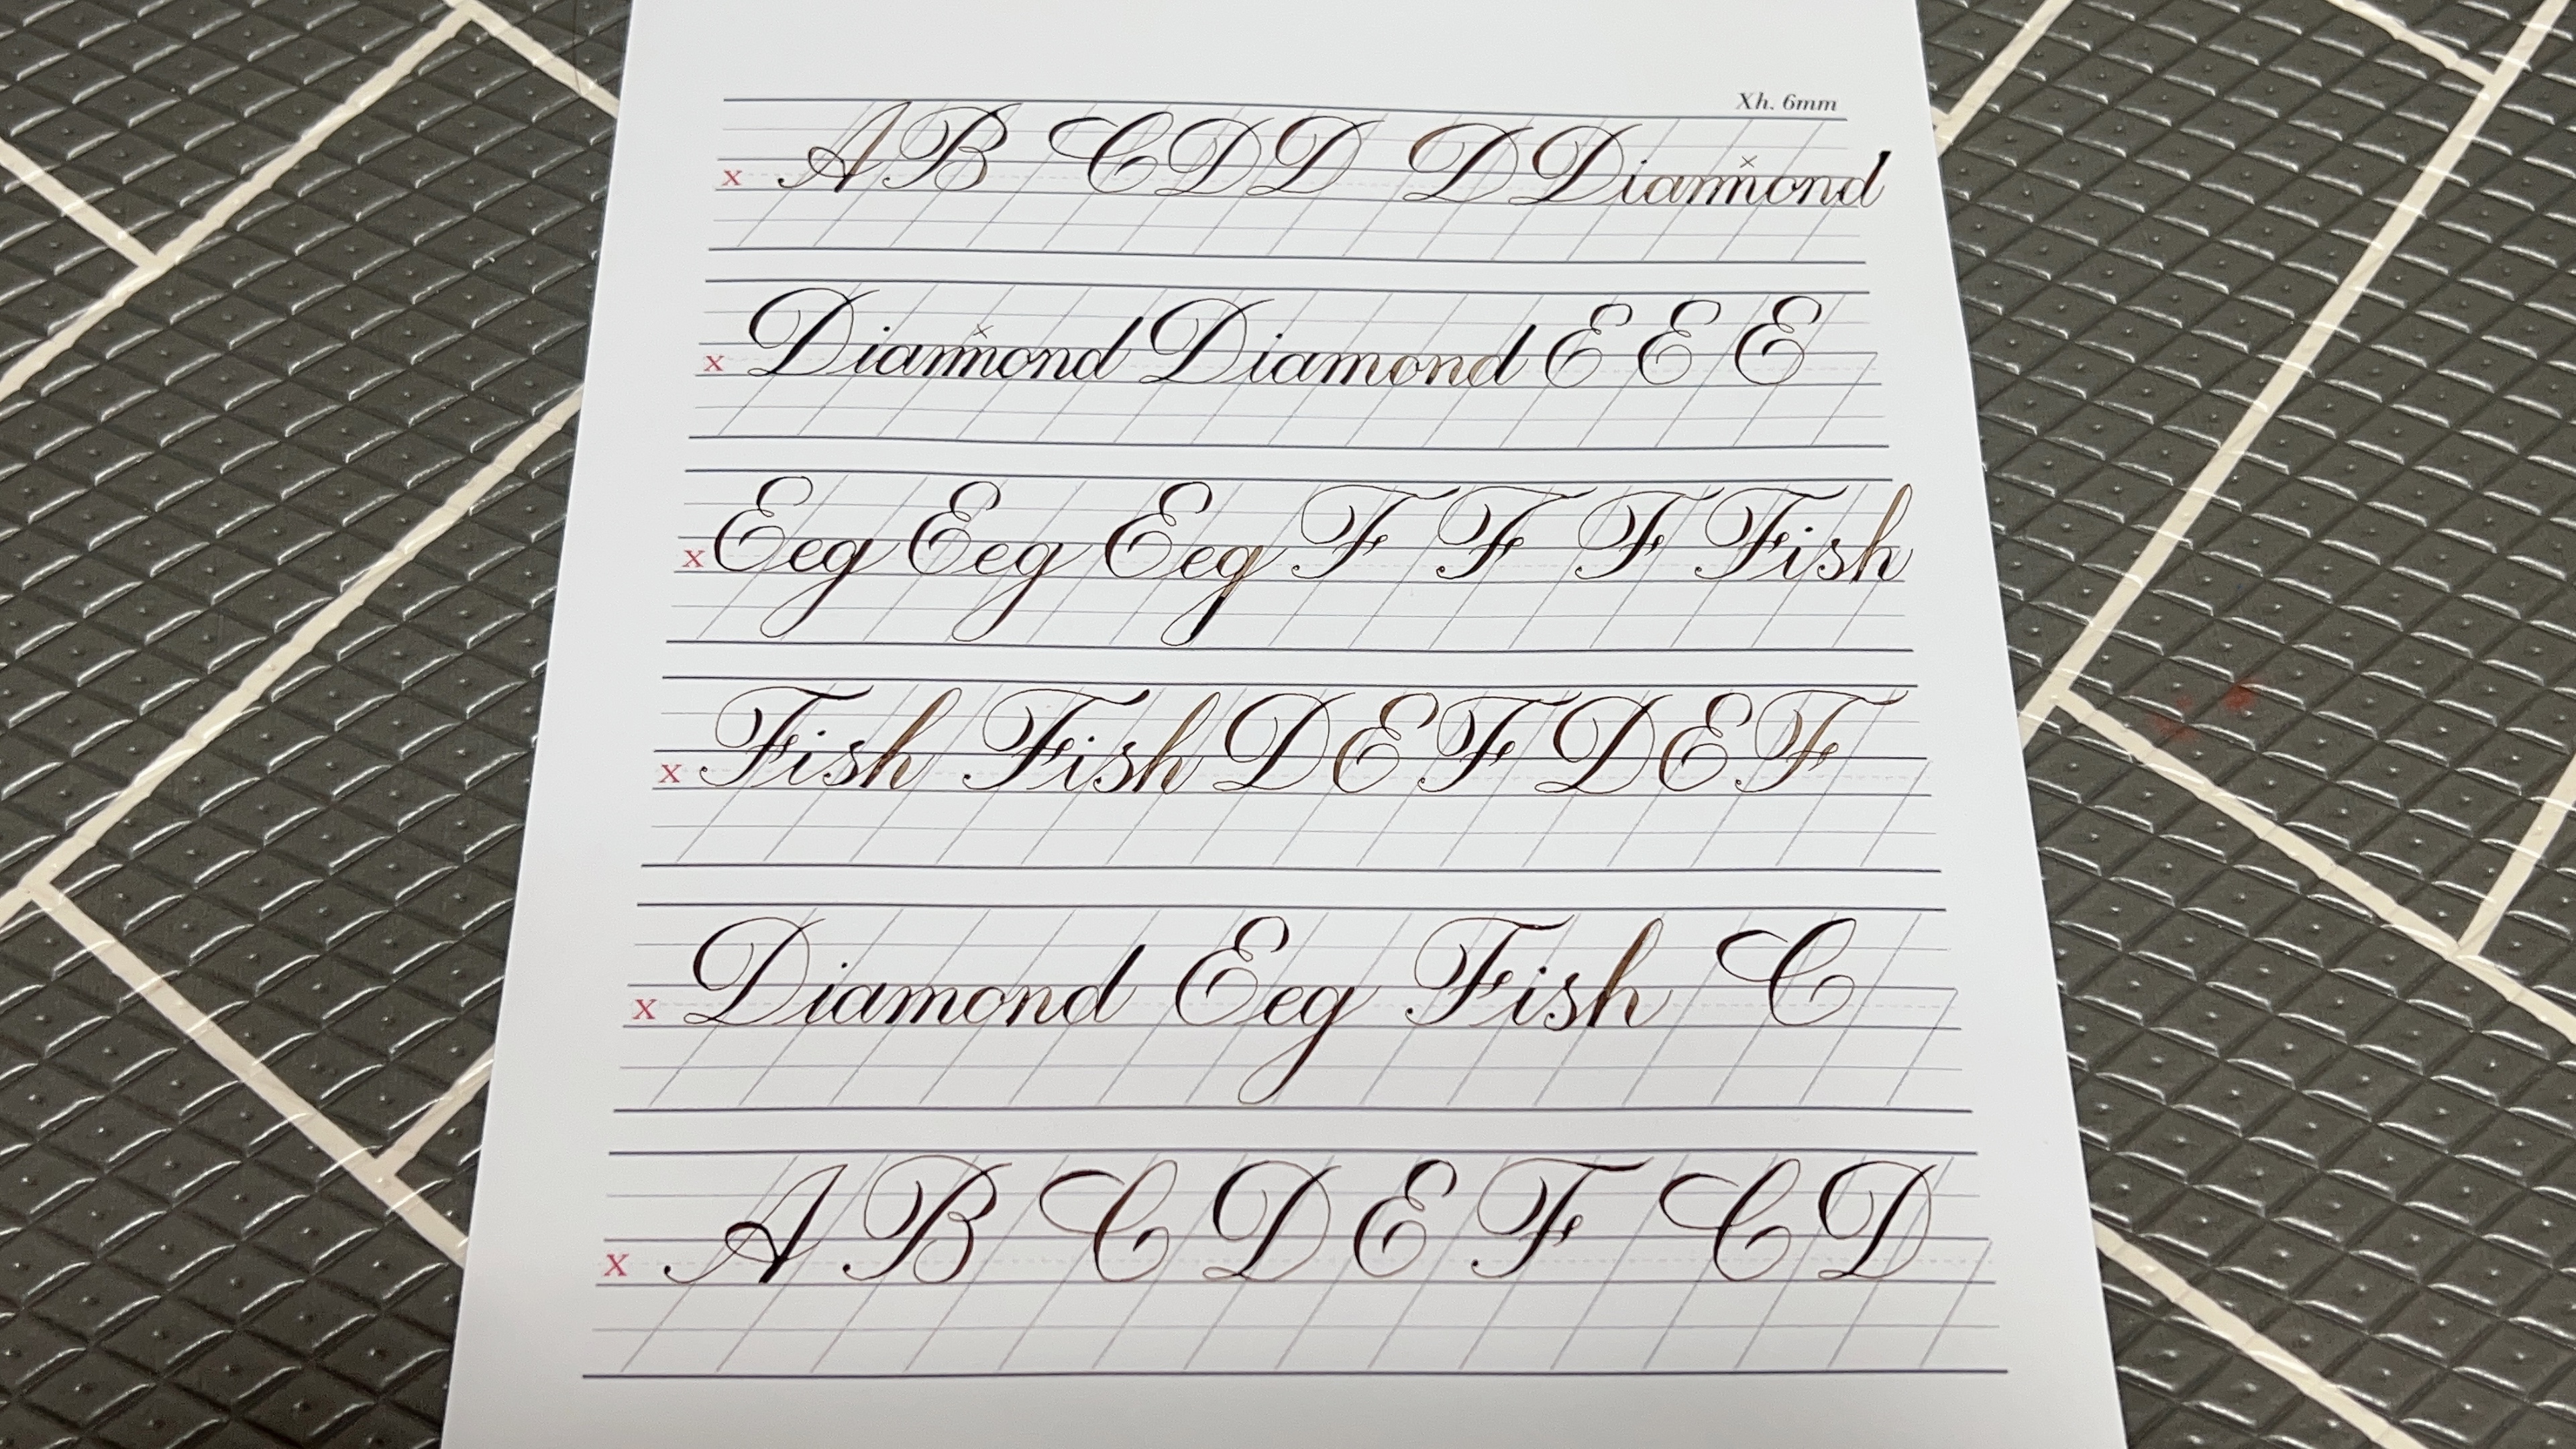 Xh. 6mm
x A B C D D D Diamond
x Diamond Diamond E E E
x Eeg Eeg Eeg F F F Fish
x Fish Fish D E F D E F
x Diamond Eeg Fish C
x A B C D E F C D